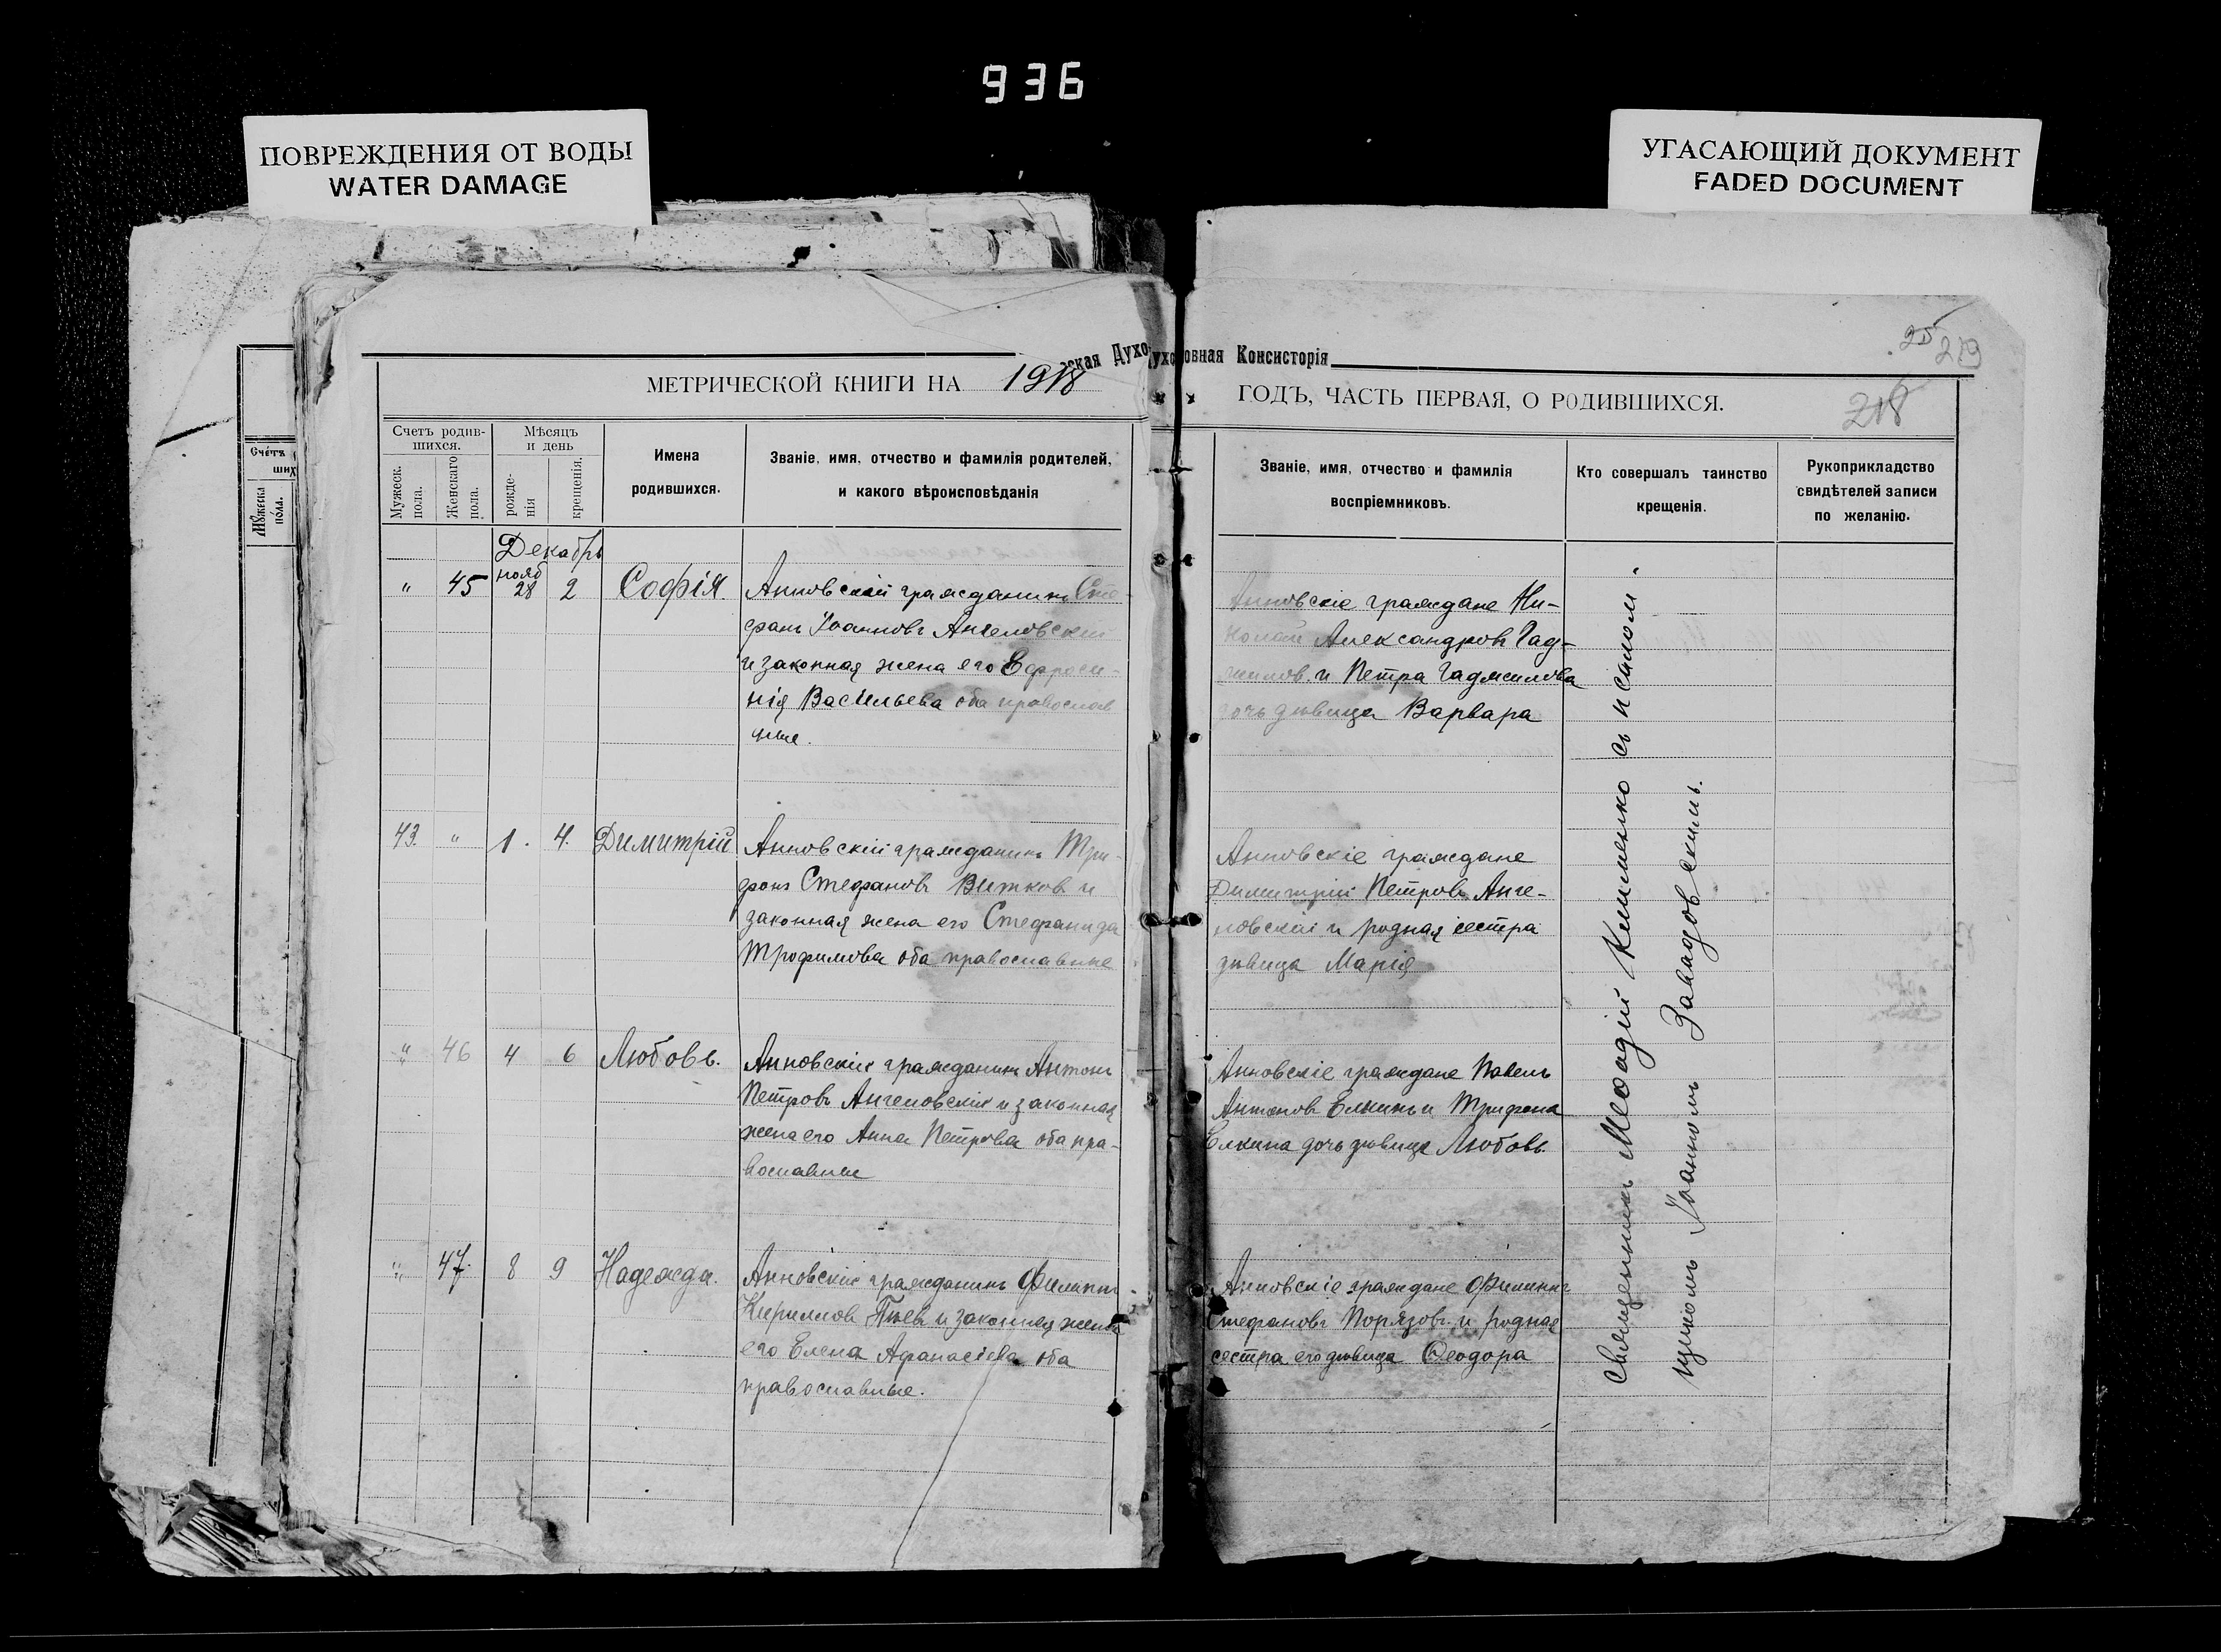 936
ПОВРЕЖДЕНИЯ ОТ ВОДЫ
WATER DAMAGE
УГАСАЮЩИЙ ДОКУМЕНТ
FADED DOCUMENT
ская Духо
духовная Консисторія
25 219
218
МЕТРИЧЕСКОЙ КНИГИ НА 1918
ГОДЪ, ЧАСТЬ ПЕРВАЯ, О РОДИВШИХСЯ.
Счетъ
ших
Мужеска
пола.
Счетъ родив-
шихся.
Мужеск.
пола.
Женскаго
пола.
Мѣсяцъ
и день
рожде-
нія
крещенія.
Имена
родившихся.
Званіе, имя, отчество и фамилія родителей,
и какого вѣроисповѣданія
Званіе, имя, отчество и фамилія
воспріемниковъ.
Кто совершалъ таинство
крещенія.
Рукоприкладство
свидѣтелей записи
по желанію.
Декабрь
нояб
" 45 28 2 Софія.
Анновскій гражданинъ Сте-
фанъ Іоанновъ Ангеловскій
и законная жена его Ефроси-
нія Васильева оба православ
ные.
Анновскіе граждане Ни-
колай Александровъ Гад-
жиловъ и Петра Гаджилова
дочь дѣвица Варвара
43. " 1. 4. Димитрій
Анновскій гражданинъ Три-
фонъ Стефановъ Витков и
законная жена его Стефанида
Трофимова оба православные
Анновскіе граждане
Димитрій Петровъ Анге-
ловскій и родная сестра
дѣвица Марія
" 46 4 6 Любовь.
Анновскій гражданинъ Антонъ
Петровъ Ангеловскій и законная
жена его Анна Петрова оба пра-
вославные
Анновскіе граждане Павелъ
Антоновъ Елкинъ и Трифона
Елкина дочь дѣвица Любовь.
" 47. 8 9 Надежда.
Анновскій гражданинъ Филиппъ
Кирилловъ и законная жена
его Елена Афанасіева оба
православные.
Анновскіе граждане Филиппъ
Стефановъ Порязовъ и родная
сестра его дѣвица Ѳеодора
Священникъ Меѳодій Клименко съ псалом-
щикомъ Іоанномъ Завадовскимъ.